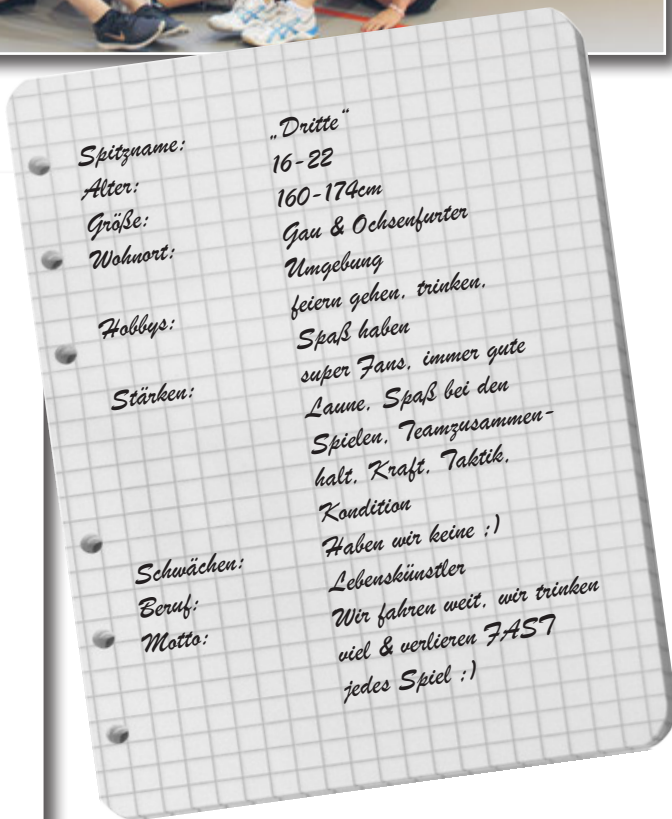 Spitzname: „Dritte“
Alter: 16-22
Größe: 160-174cm
Wohnort: Gau & Ochsenfurter
Umgebung
Hobbys: feiern gehen, trinken,
Spaß haben
Stärken: super Fans, immer gute
Laune, Spaß bei den
Spielen, Teamzusammen-
halt, Kraft, Taktik,
Kondition
Schwächen: Haben wir keine ;)
Beruf: Lebenskünstler
Motto: Wir fahren weit, wir trinken
viel & verlieren FAST
jedes Spiel ;)